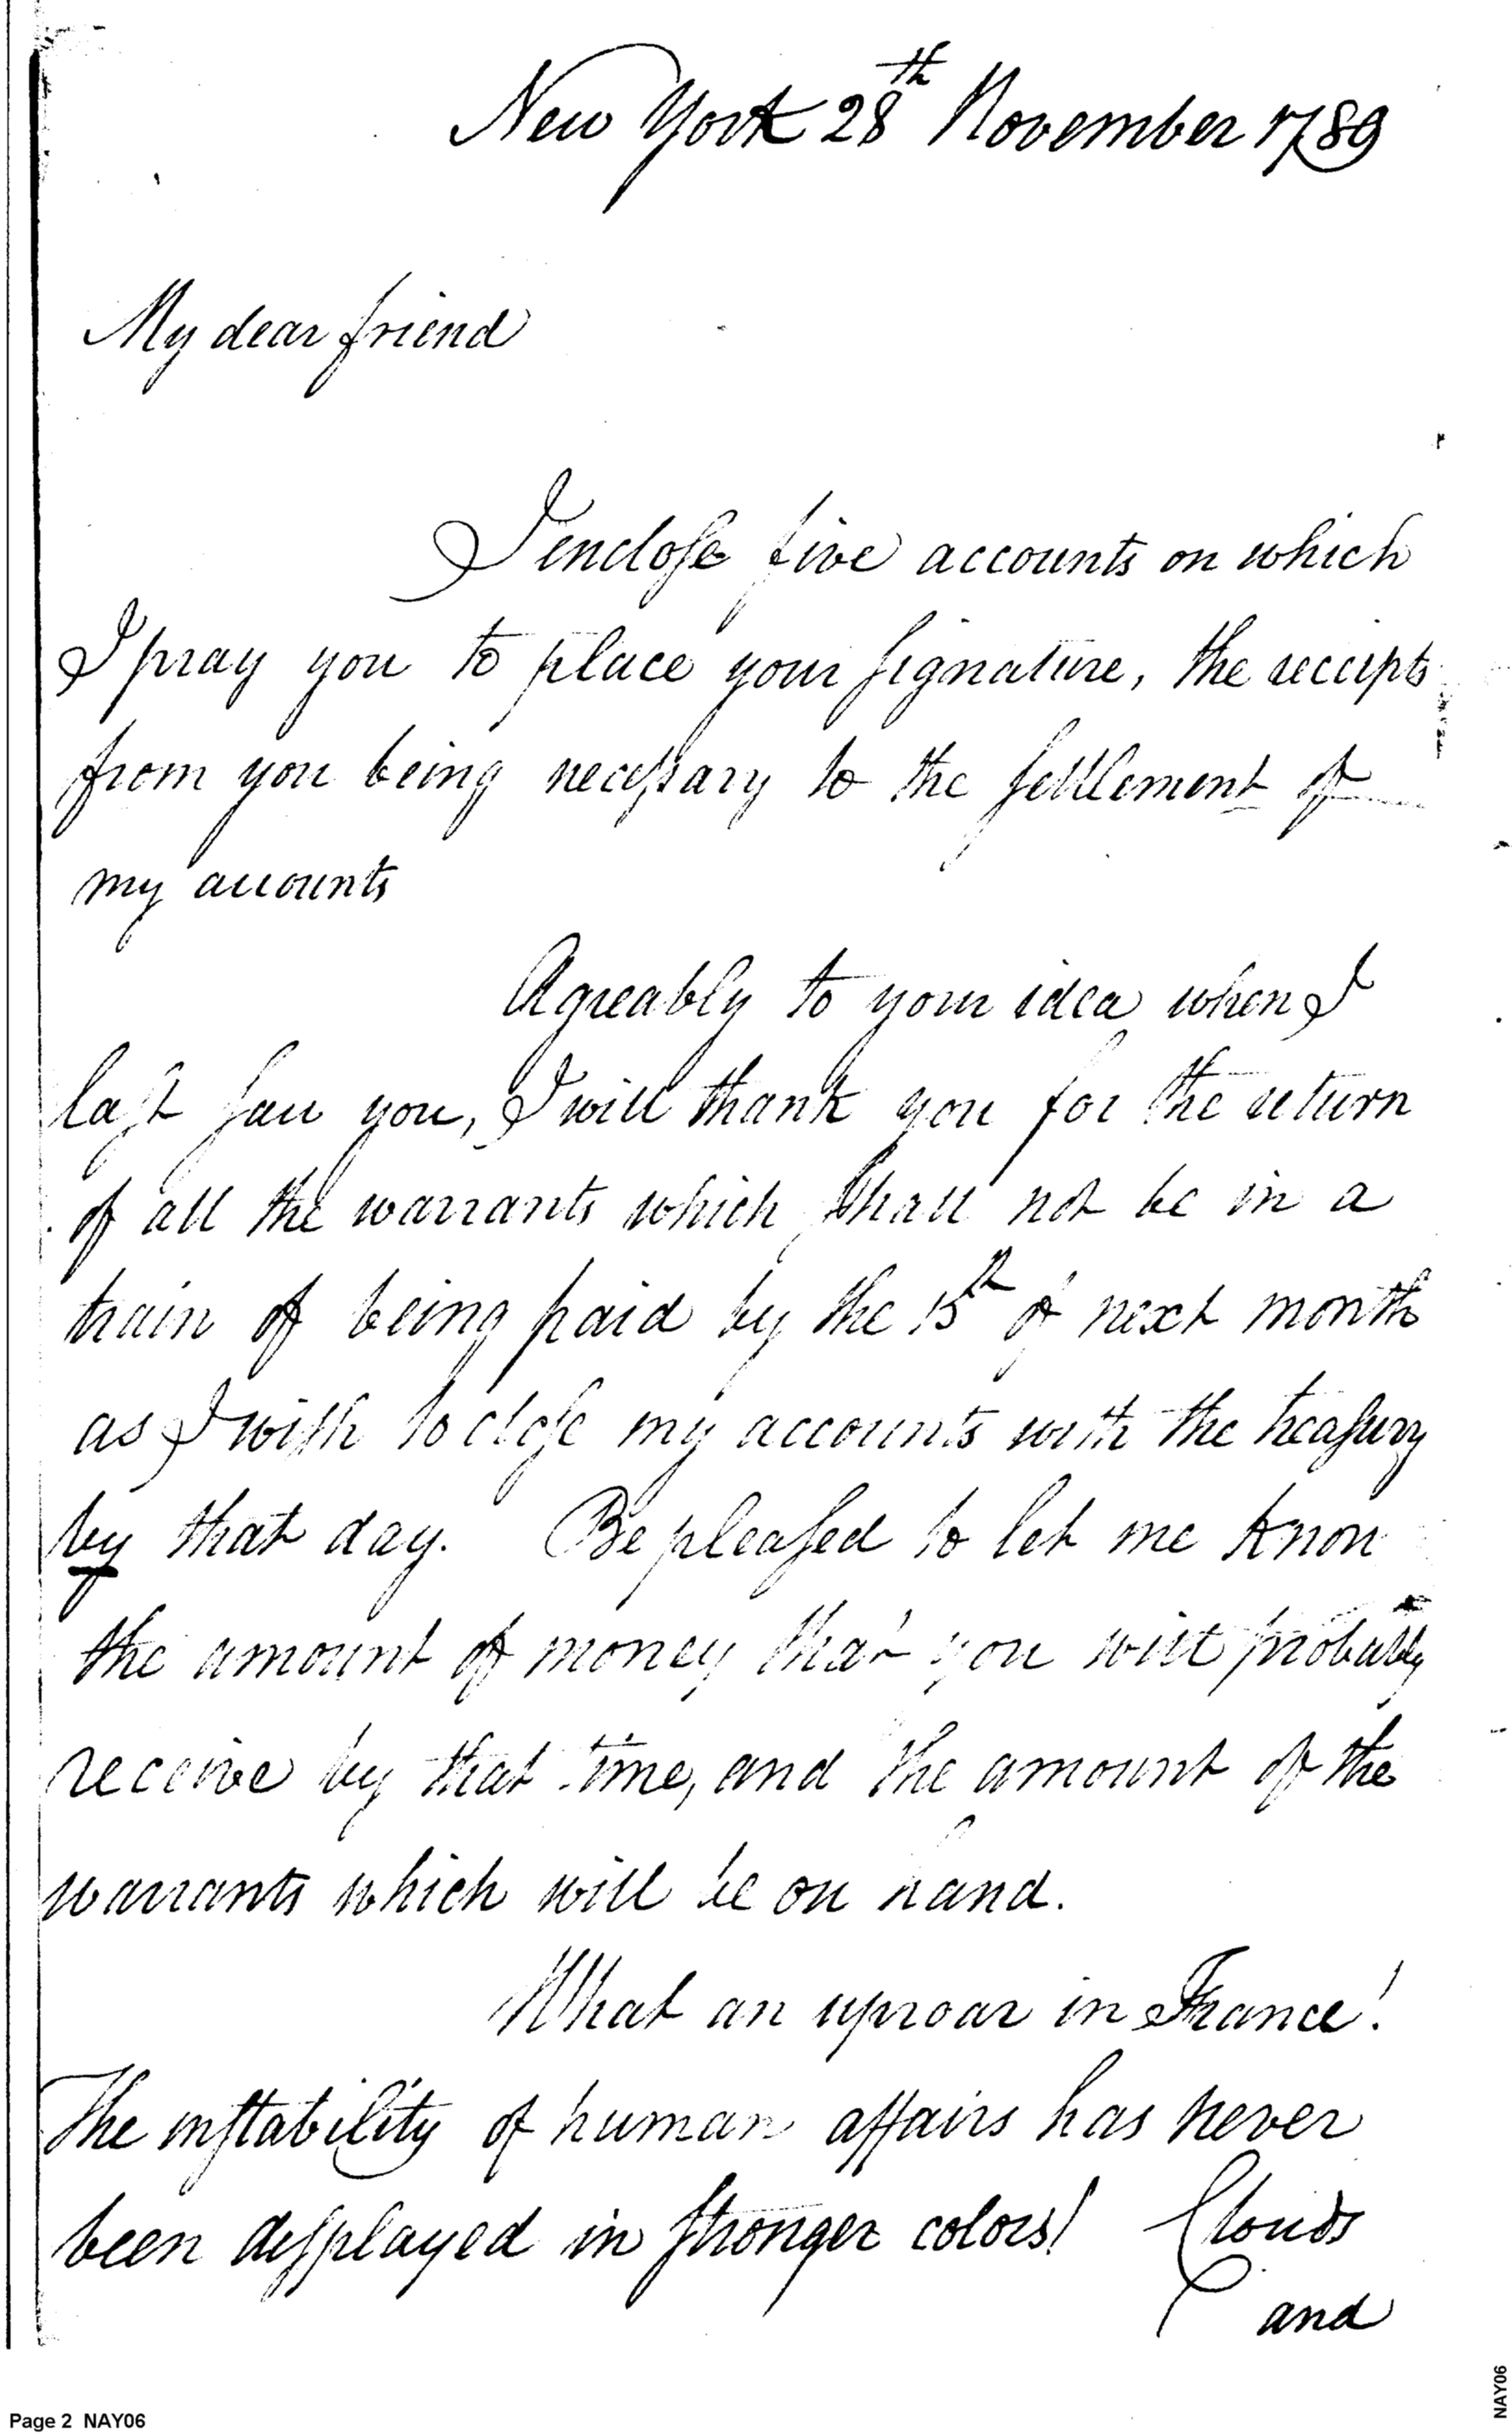 New York 28th November 1789
My dear friend
I enclose five accounts on which
I pray you to place your signature, the receipts
from you being necessary to the settlement of
my accounts
Agreably to your idea when I
last saw you, I will thank you for the return
of all the warrants which shall not be in a
train of being paid by the 15th of next month
as I wish to close my accounts with the treasury
by that day. Be pleased to let me know
the amount of money that you will probably
receive by that time, and the amount of the
warrants which will be on hand.
What an uproar in France!
The instability of human affairs has never
been displayed in stronger colors! Clouds
and
Page 2 NAY06
NAY06